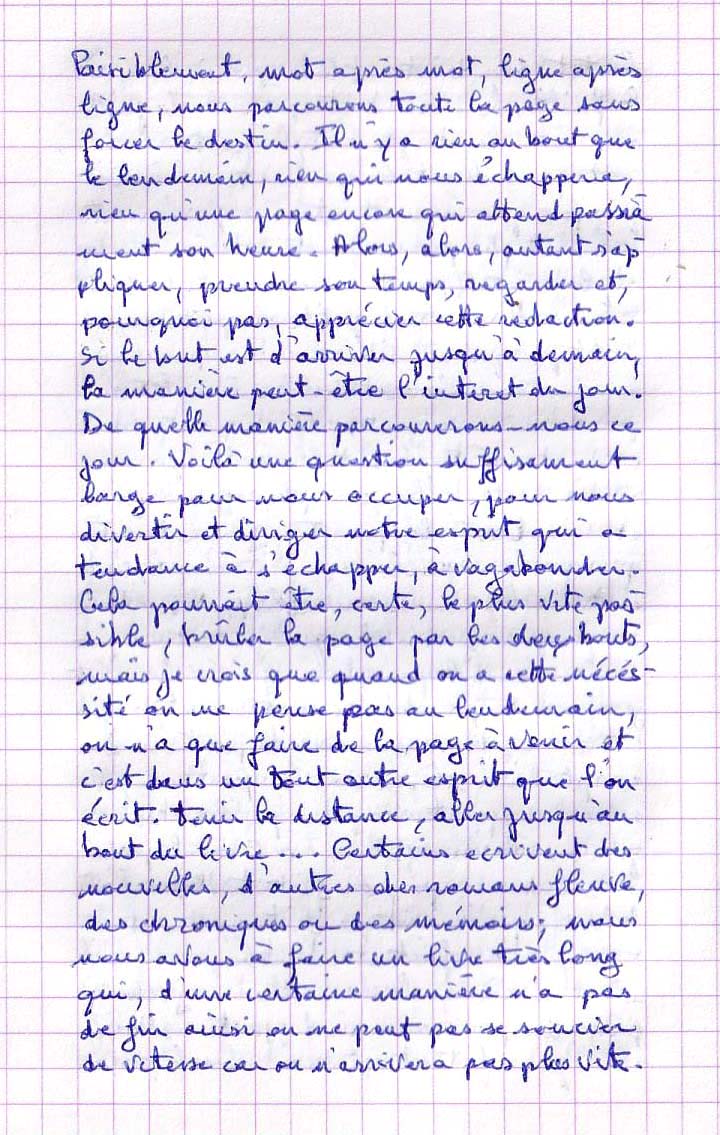 Paisiblement, mot après mot, ligne après
ligne, nous parcourons toute la page sans
forcer le destin. Il n'y a rien au bout que
le lendemain, rien qui nous échappera,
rien qu'une page encore qui attend passia
ment son heure. Alors, alors, autant s'ap
pliquer, prendre son temps, regarder et,
pourquoi pas, apprécier cette rédaction.
Si le but est d'arriver jusqu'à demain,
la manière peut-être l'interet du jour.
De quelle manière parcourerons-nous ce
jour. Voilà une question suffisament
large pour nous occuper, pour nous
divertir et diriger notre esprit qui a
tendance à s'échapper, à vagabonder.
Cela pourrait être, certe, le plus vite pos
sible, brûler la page par les deux bouts,
mais je crois que quand on a cette nécés-
sité on ne pense pas au lendemain,
on n'a que faire de la page à venir et
c'est dans un tout autre esprit que l'on
écrit. Tenir la distance, aller jusqu'au
bout du livre... Certains ecrivent des
nouvelles, d'autres des romans fleuve,
des chroniques ou des mémoirs; nous
nous avons à faire un livre très long
qui, d'une certaine manière n'a pas
de fin ainsi on ne peut pas se soucier
de vitesse car on n'arrivera pas plus vite.